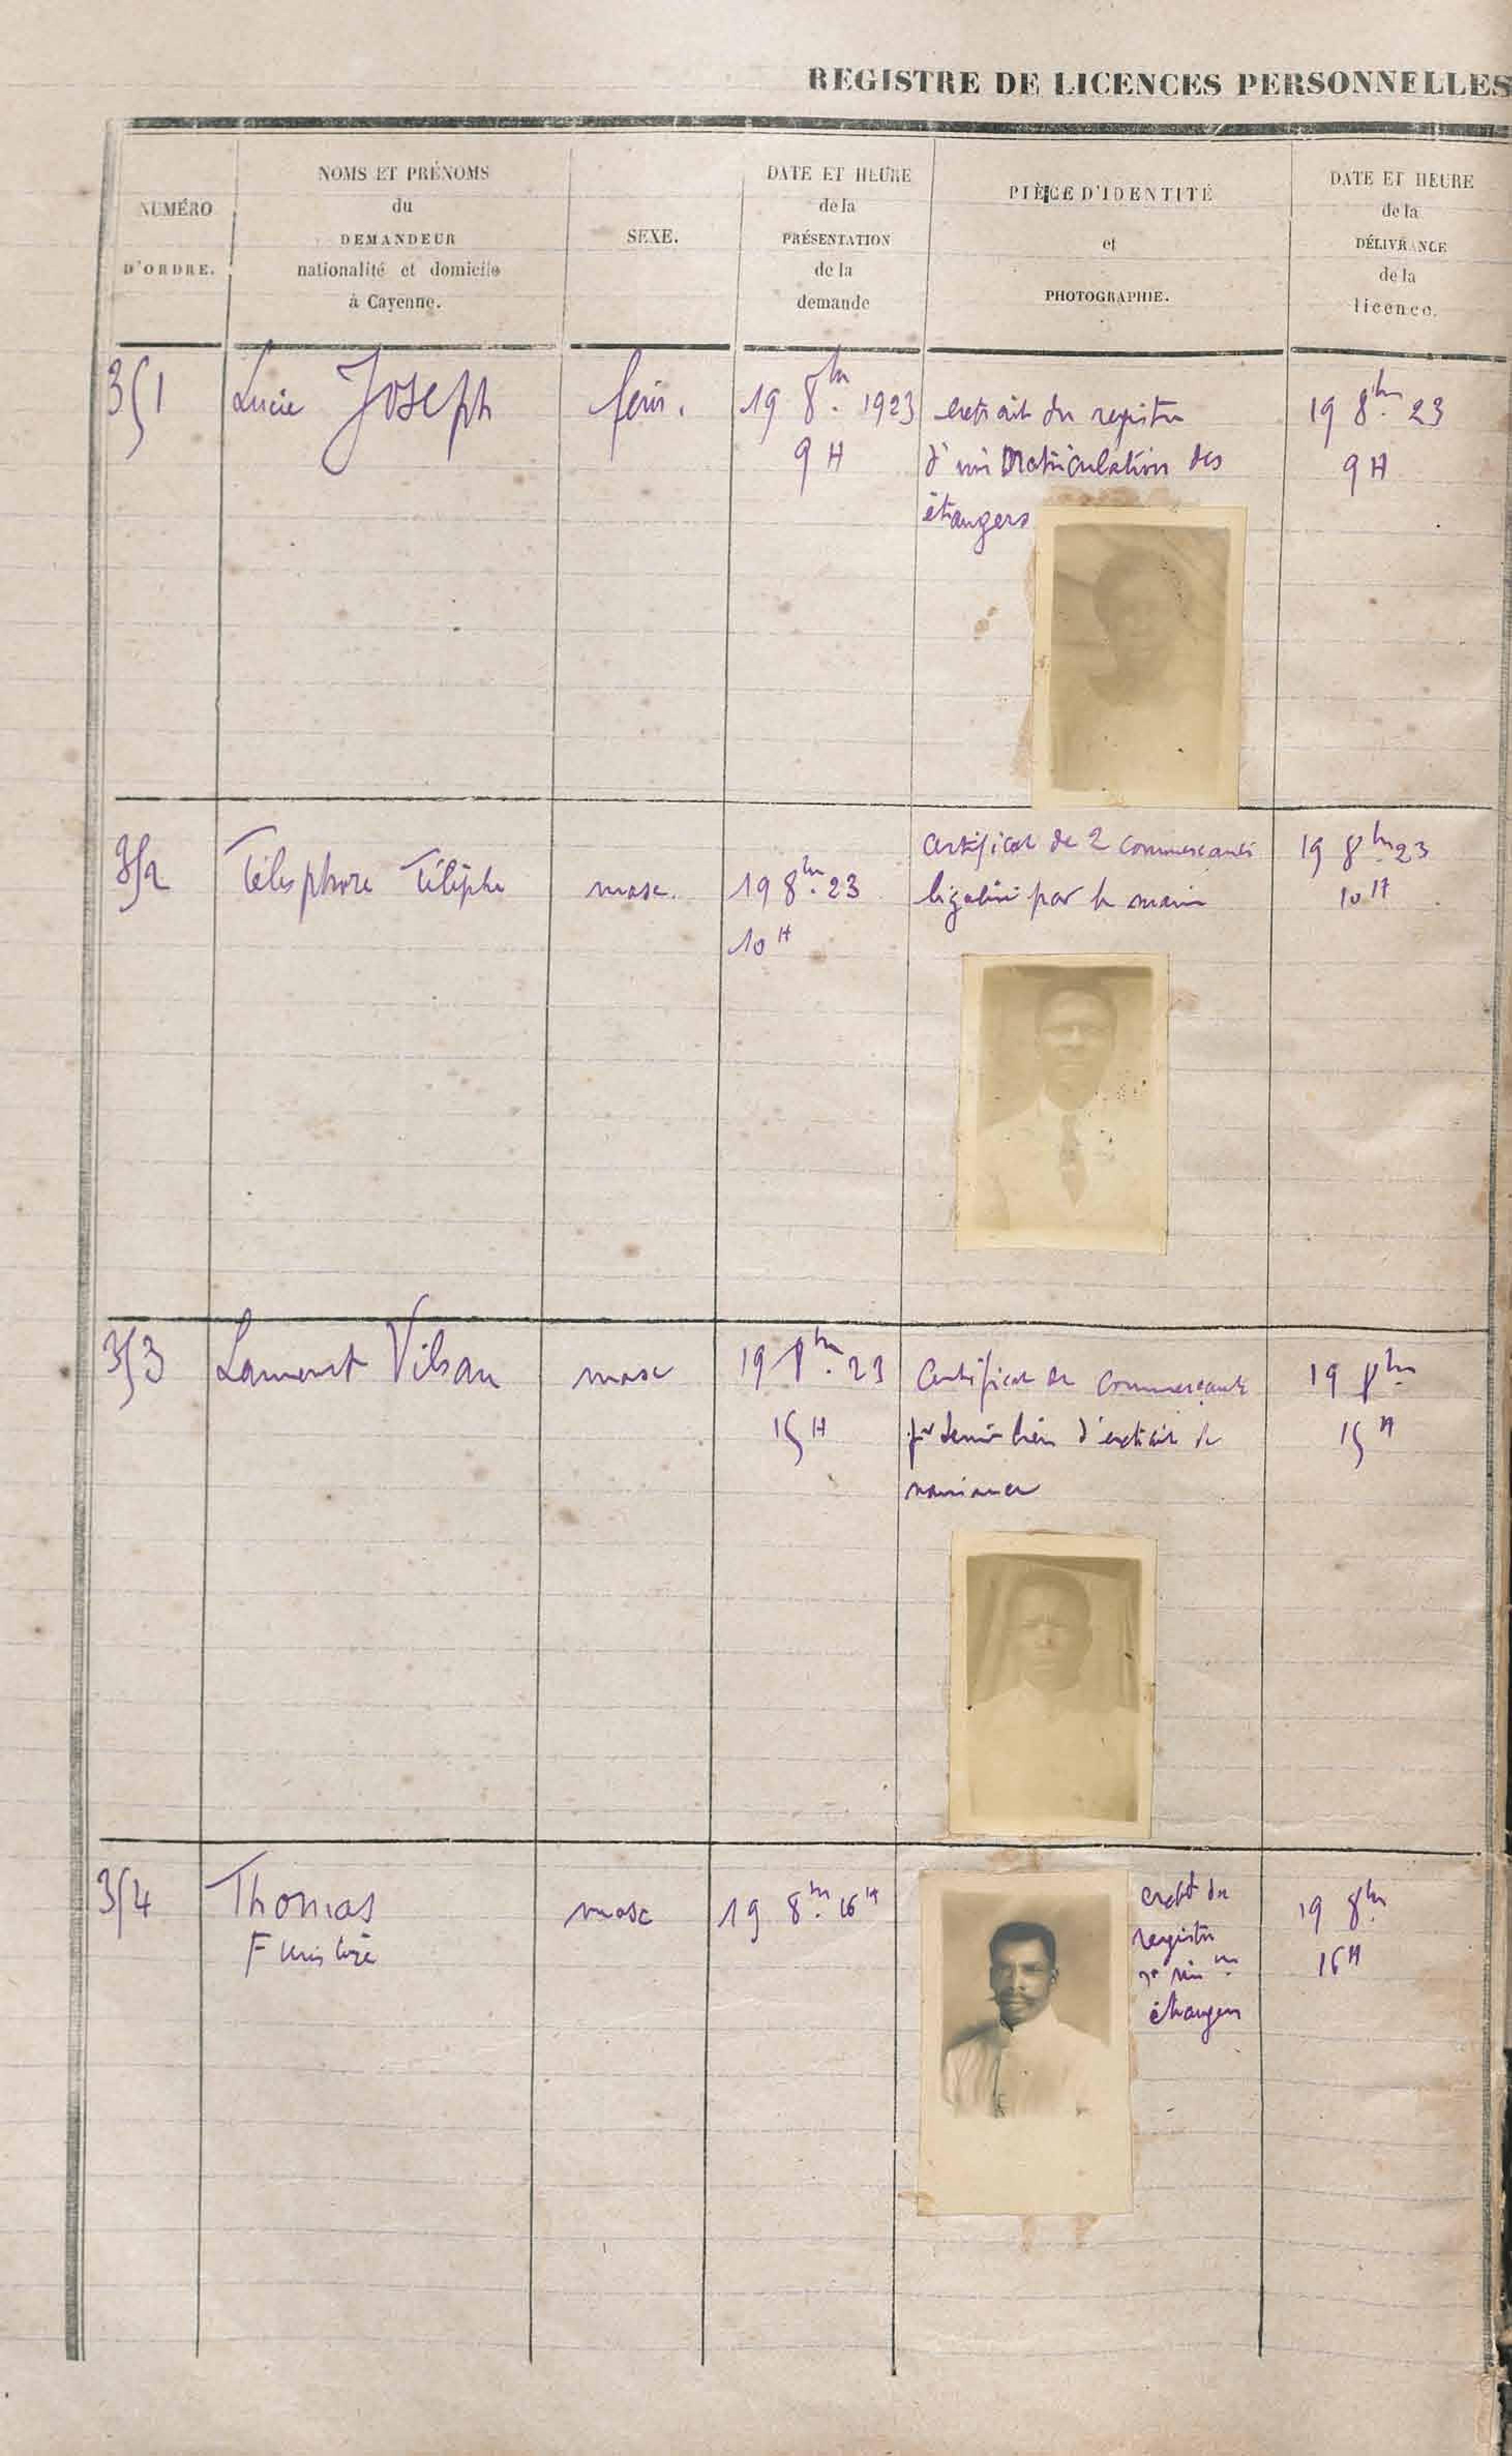 REGISTRE DE LICENCES PERSONNELLES
NUMÉRO
D'ORDRE.
NOMS ET PRÉNOMS
du
DEMANDEUR
nationalité et domicile
à Cayenne.
SEXE.
DATE ET HEURE
de la
PRÉSENTATION
de la
demande
PIÈCE D'IDENTITÉ
et
PHOTOGRAPHIE.
DATE ET HEURE
de la
DÉLIVRANCE
de la
licence.
351
Lucie Joseph
fém.
19 8bre 1923
9 H
extrait du registre
d'immatriculation des
étrangers
19 8bre 23
9 H
352
Télesphore
masc.
19 8bre 23
10 H
Certificat de 2 commerçants
légalisé par le maire
19 8bre 23
10 H
353
Laurent Vilsan
masc
19 8bre 23
15 H
Certificat de commerçants
pr tenir lieu d'extrait de
naissance
19 8bre
15 H
354
Thomas
masc
19 8bre 16 H
extt du
registre
étrangers
19 8bre
16 H